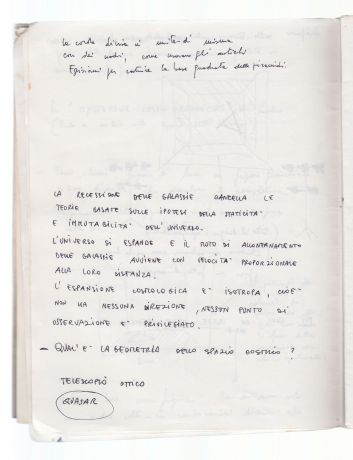 la corda divisa in unità di misura
con dei nodi, come usavano gli antichi
Egiziani per costruire la base quadrata delle piramidi.
LA RECESSIONE DELLE GALASSIE CANCELLA LE
TEORIE BASATE SULLE IPOTESI DELLA STATICITA'
E IMMUTABILITA' DELL'UNIVERSO.
L'UNIVERSO SI ESPANDE E IL MOTO DI ALLONTANAMENTO
DELLE GALASSIE AVVIENE CON VELOCITA' PROPORZIONALE
ALLA LORO DISTANZA.
L'ESPANSIONE COSMOLOGICA E' ISOTROPA, CIOE'
NON HA NESSUNA DIREZIONE, NESSUN PUNTO DI
OSSERVAZIONE E' PRIVILEGIATO.
- QUAL'E' LA GEOMETRIA DELLO SPAZIO COSMICO?
TELESCOPIO OTTICO
QUASAR